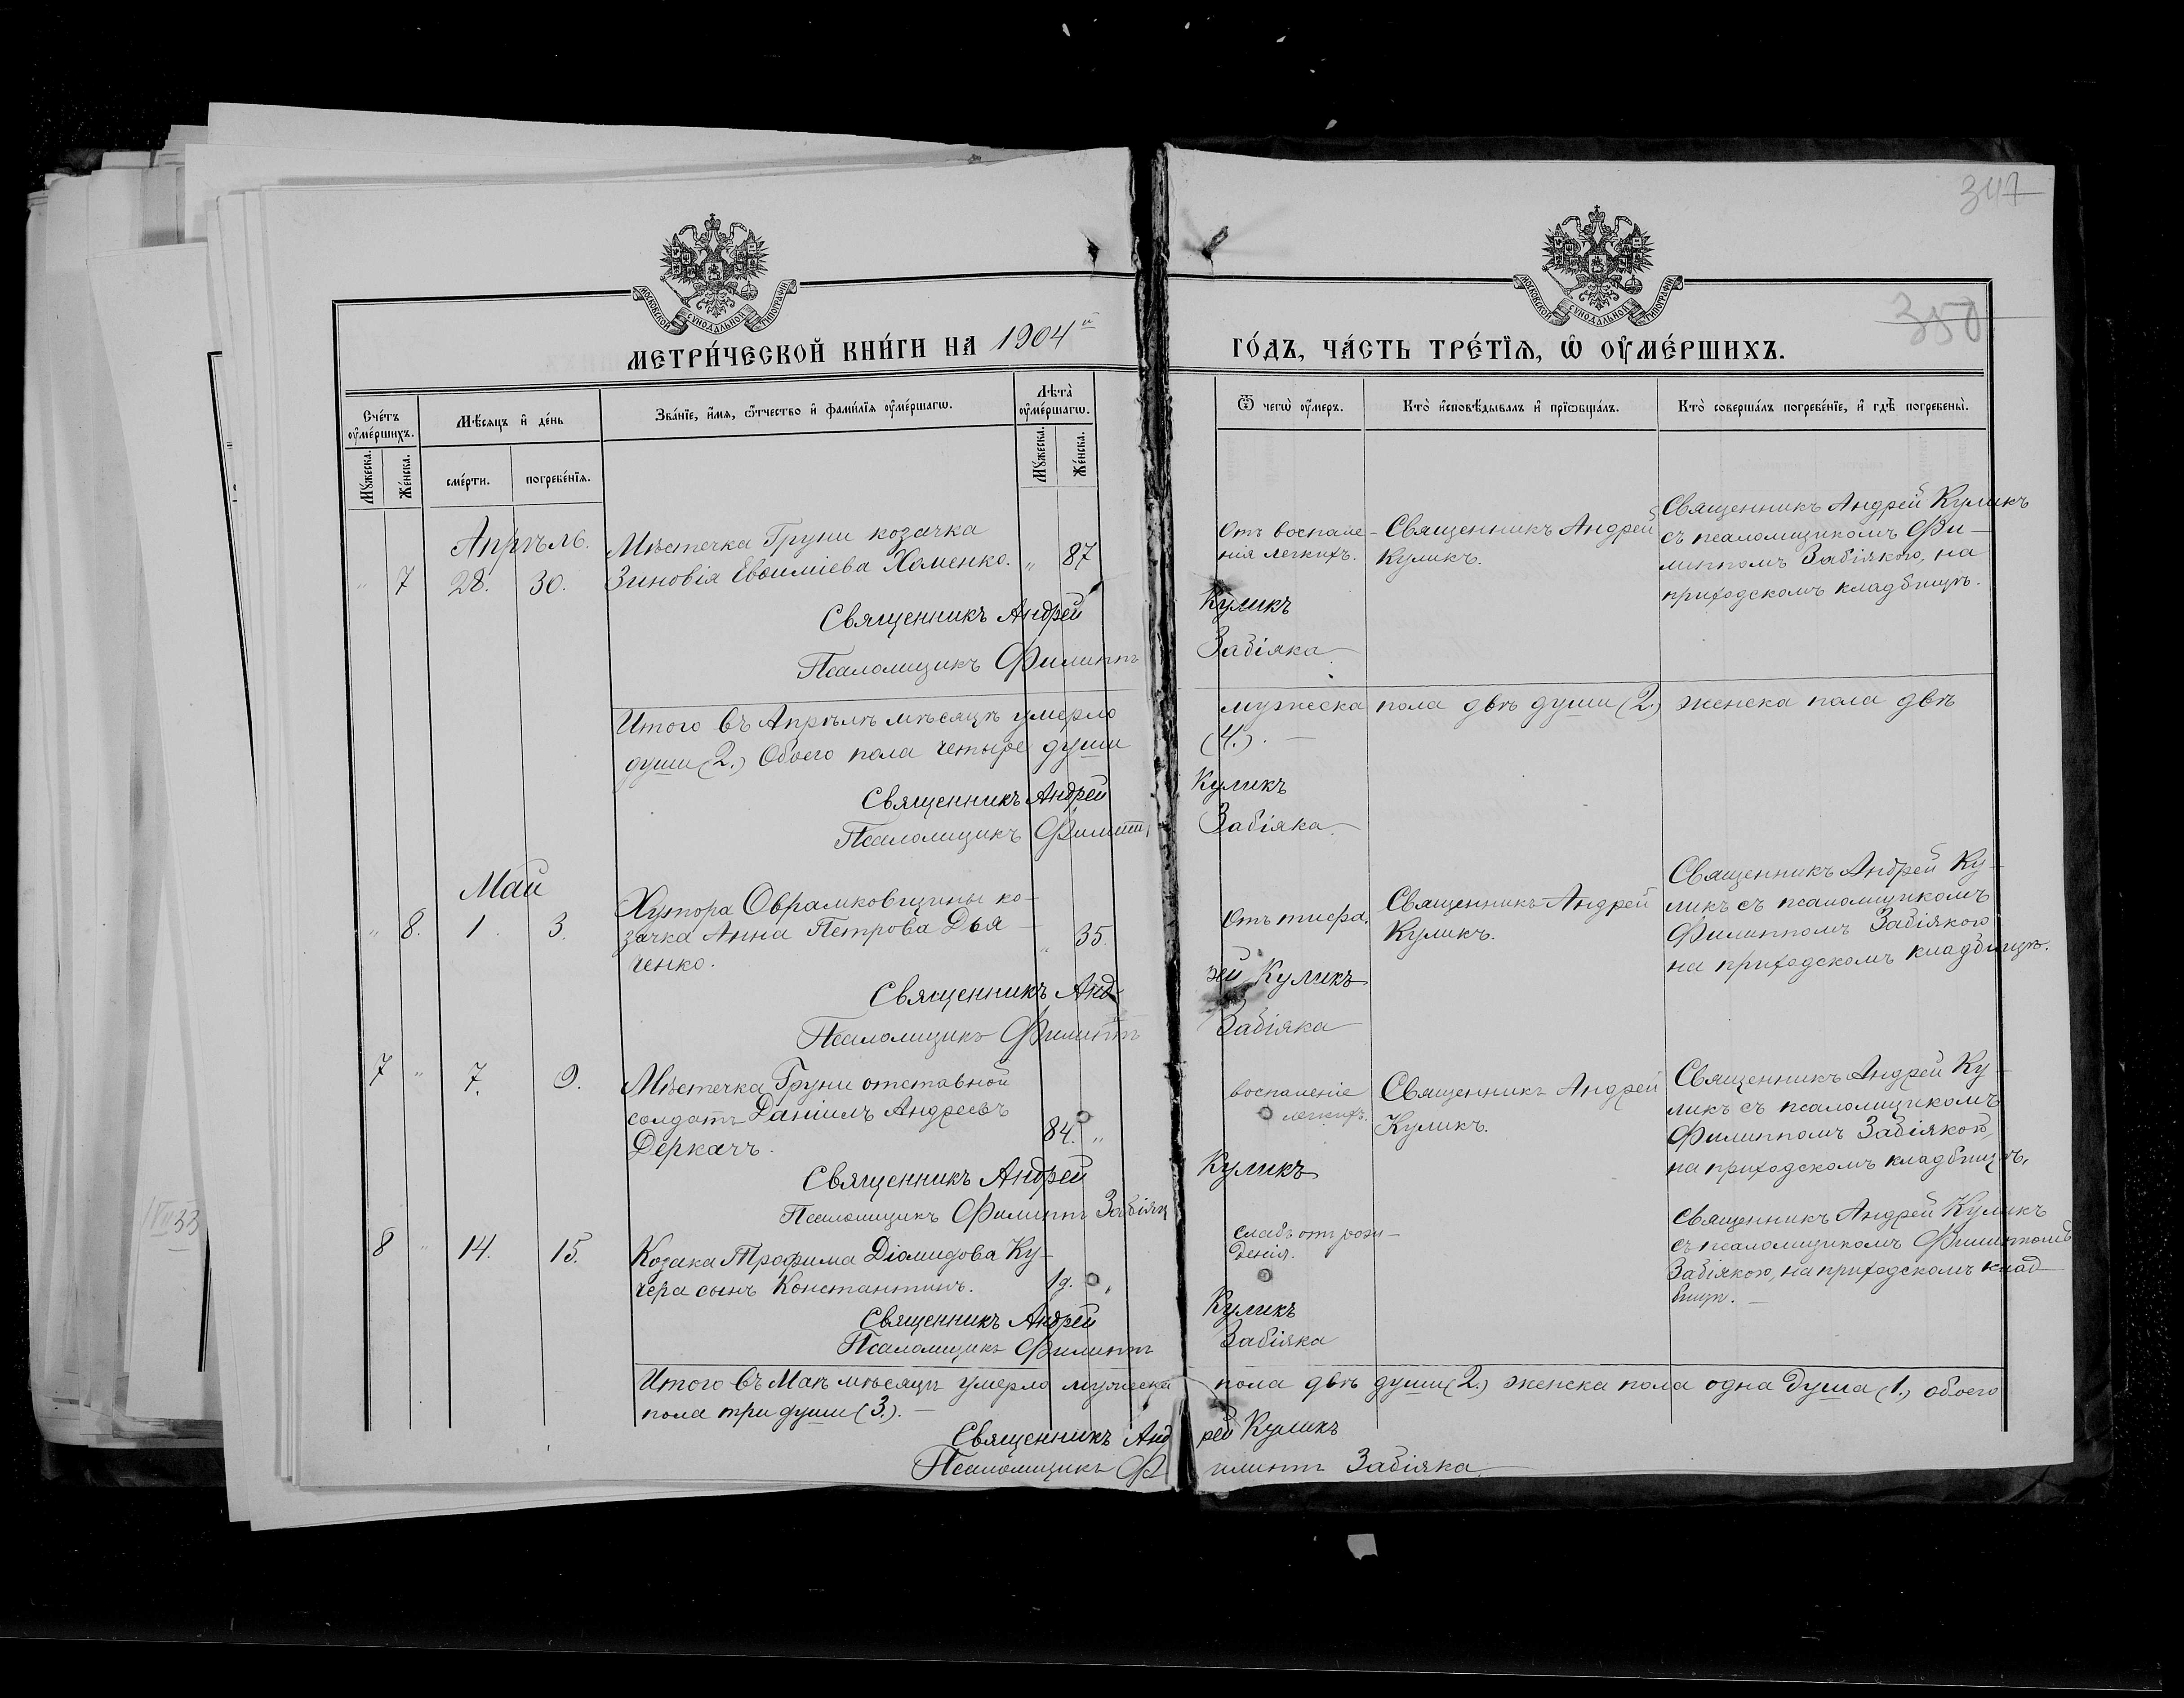 347
350
МОСКОВСКОЙ СѴНОДАЛЬНОЙ ТИПОГРАФІИ
МОСКОВСКОЙ СѴНОДАЛЬНОЙ ТИПОГРАФІИ
МЕТРИ́ЧЕСКОЙ КНИ́ГИ НА 1904й
ГО́ДЪ, ЧА́СТЬ ТРЕ́ТІѦ, Ѡ҆ ОУ҆МЕ́РШИХЪ.
Сче́тъ оу҆ме́ршихъ.
Мѣ́сѧцъ и҆ де́нь
Зва́нїе, и҆́мѧ, ѻ҆́тчество и҆ фами́лїѧ оу҆ме́ршагѡ.
Лѣта̀ оу҆ме́ршагѡ.
Ѿ чегѡ̀ оу҆́меръ.
Кто̀ и҆сповѣ́дывалъ и҆ прїѡбща́лъ.
Кто̀ соверша́лъ погребе́нїе, и҆ гдѣ̀ погребены̀.
Мꙋ́жеска. Же́нска.
сме́рти. погребе́нїѧ.
Мꙋ́жеска. Же́нска.
Апрѣль.
Мѣстечка Груни козачка
" 7 28. 30. Зиновія Евѳиміева Хоменко. " 87
Отъ воспале-
нія легкихъ.
Священникъ Андрей
Куликъ.
Священникъ Андрей Куликъ
съ псаломщикомъ Фи-
липпомъ Забіякою, на
приходскомъ кладбищѣ.
Священникъ Андрей Куликъ
Псаломщикъ Филиппъ Забіяка
Итого въ Апрѣлѣ мѣсяцѣ умерло мужеска пола двѣ души (2.) женска пола двѣ
души (2.) Обоего пола четыре души (4.). —
Священникъ Андрей Куликъ
Псаломщикъ Филиппъ Забіяка.
Май
" 8. 1. 3. Хутора Оврамковщины ко-
зачка Анна Петрова Дья-
ченко. " 35
Отъ тифа.
Священникъ Андрей
Куликъ.
Священникъ Андрей Ку-
ликъ съ псаломщикомъ
Филиппомъ Забіякою
на приходскомъ кладбищѣ.
Священникъ Андрей Куликъ
Псаломщикъ Филиппъ Забіяка
7 " 7. 9. Мѣстечка Груни отставной
солдатъ Даніилъ Андреевъ
Деркачъ. 84. "
воспаленіе
легкихъ.
Священникъ Андрей
Куликъ.
Священникъ Андрей Ку-
ликъ съ псаломщикомъ
Филиппомъ Забіякой,
на приходскомъ кладбищѣ.
Священникъ Андрей Куликъ
Псаломщикъ Филиппъ Забіяка
8 " 14. 15. Козака Трофима Діомидова Ку-
чера сынъ Константинъ. 1 д. "
слабъ отъ рож-
денія.
Священникъ Андрей Куликъ
съ псаломщикомъ Филиппомъ
Забіякою, на приходскомъ клад-
бищѣ. —
Священникъ Андрей Куликъ
Псаломщикъ Филиппъ Забіяка
Итого въ Маѣ мѣсяцѣ умерло мужеска пола двѣ души (2.) женска пола одна душа (1.) обоего
пола три души (3.). —
Священникъ Андрей Куликъ
Псаломщикъ Филиппъ Забіяка.